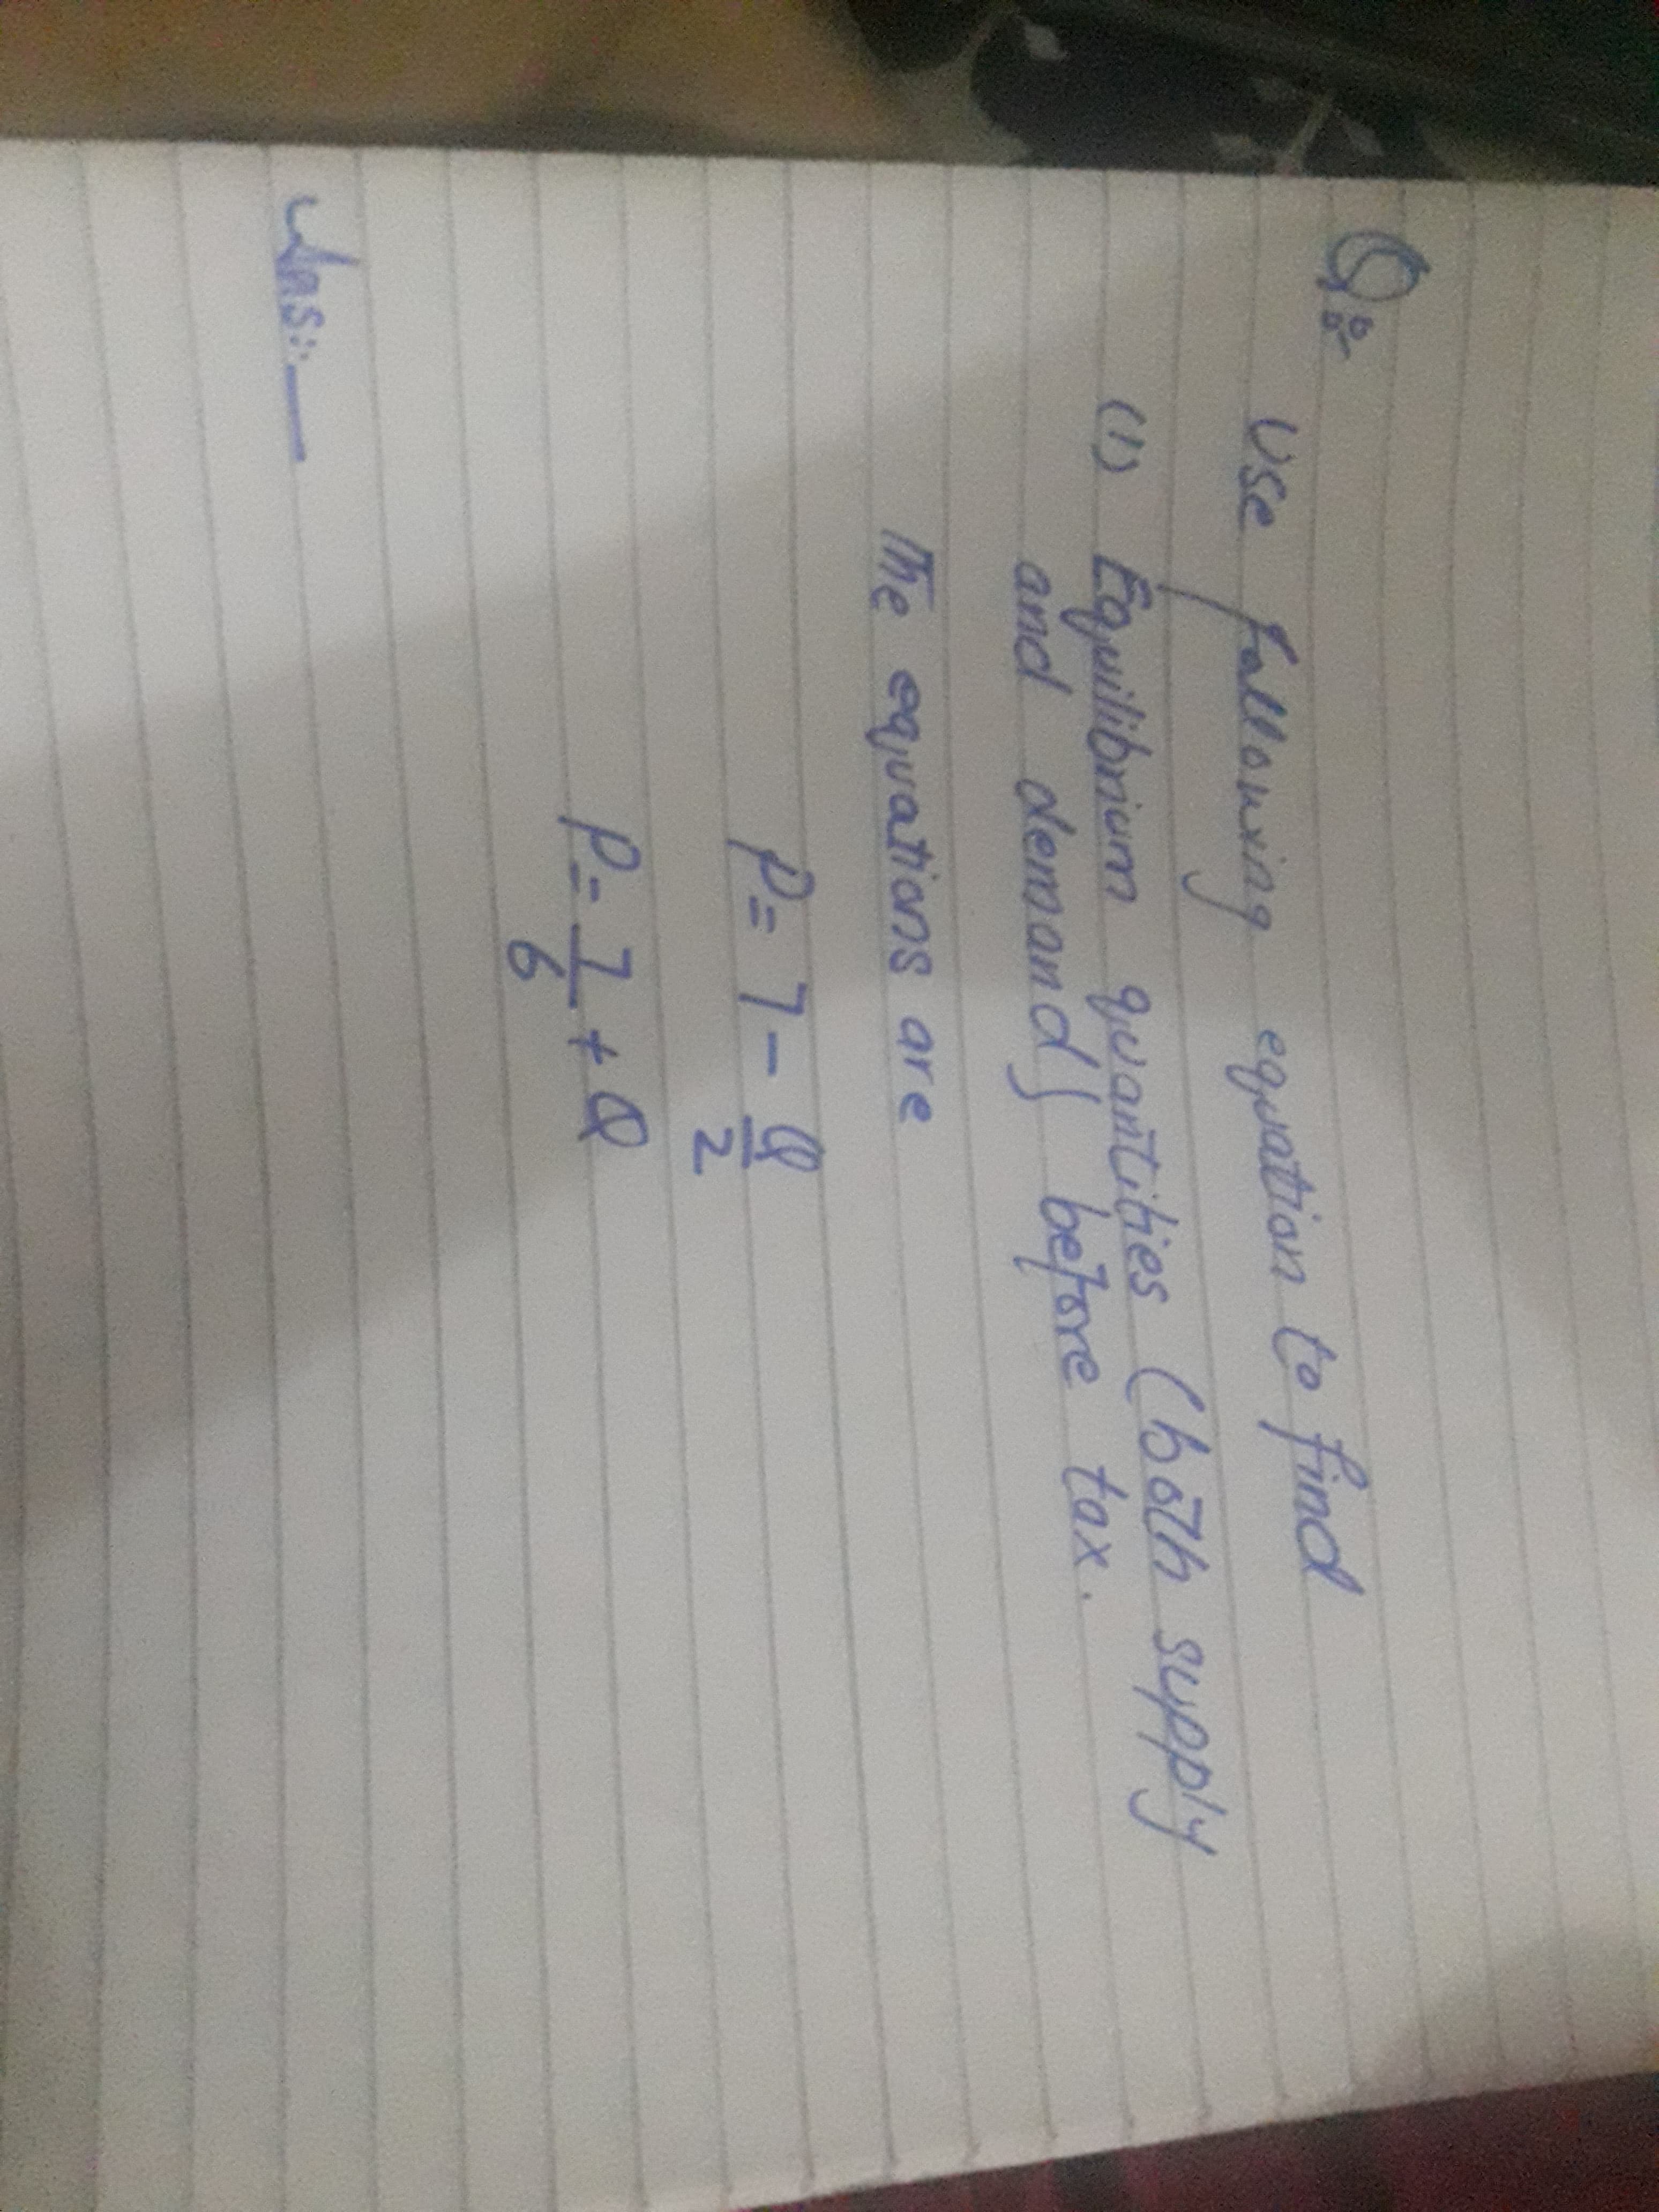 Q:-
Use following equation to find
(1) Equilibrium quantities (both supply
and demand) before tax.
The equations are
P = 7 - Q/2
P = 7/6 + Q
Ans:-